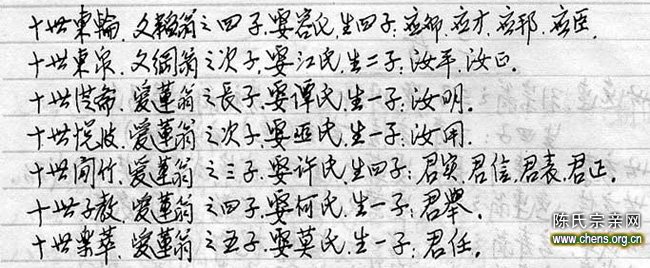 十世東輪，文翰翁之四子，娶容氏，生四子：应卿，应才，应邦，应臣。
十世東泉，文綱翁之次子，娶江氏，生二子：汝平，汝正。
十世，爱蓮翁之長子，娶谭氏，生一子：汝明。
十世悦，爱蓮翁之次子，娶巫氏，生一子：汝用。
十世间竹，爱蓮翁之三子，娶许氏，生四子：君实，君信，君表，君正。
十世子敖，爱蓮翁之四子，娶何氏，生一子：君舉。
十世樂萃，爱蓮翁之五子，娶莫氏，生一子：君任。
陈氏宗亲网
www.chens.org.cn